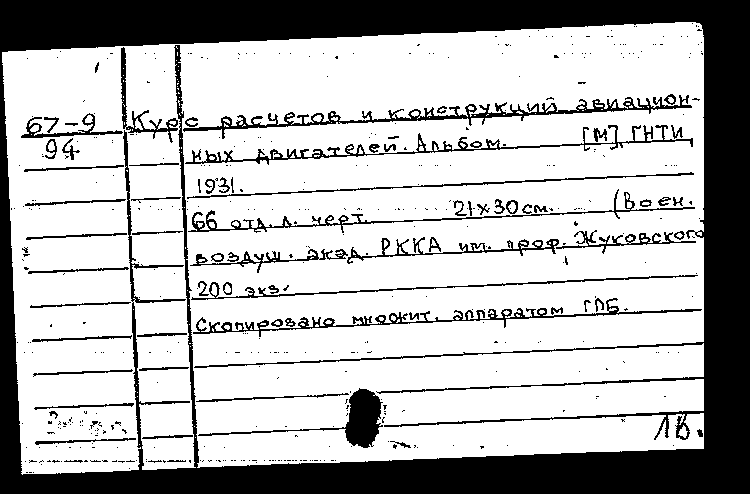 67-9 Курс расчетов и конструкций авиацион-
94 ных двигателей. Альбом. [М], ГНТИ,
1931.
66 отд. л. черт. 21x30 см. (Воен.
воздуш. акад. РККА им. проф. Жуковского
200 экз.
Скопировано множит. аппаратом ГПБ.
1В.